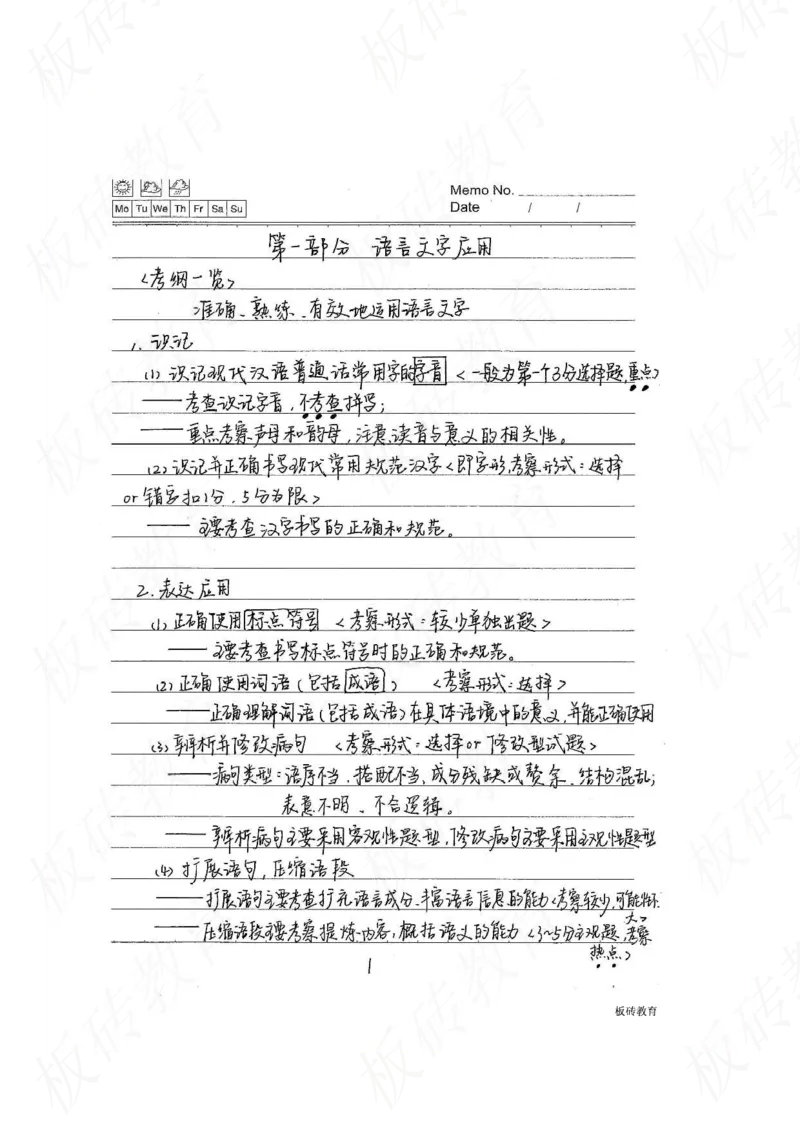 Memo No.
Mo Tu We Th Fr Sa Su
Date / /
第一部分 语言文字应用
<考纲一览>
准确、熟练、有效地运用语言文字
1. 识记
(1) 识记现代汉语普通话常用字的字音 <一般为第一个3分选择题,重点>
——考查识记字音,不考查拼写;
——重点考察声母和韵母,注意读音与意义的相关性。
(2) 识记并正确书写现代常用规范汉字<即字形,考察形式:选择
or 错字扣1分,5分为限>
——主要考查汉字书写的正确和规范。
2. 表达应用
(1) 正确使用标点符号 <考察形式:较少单独出题>
——主要考查书写标点符号时的正确和规范。
(2) 正确使用词语(包括成语) <考察形式:选择>
——正确理解词语(包括成语)在具体语境中的意义,并能正确使用
(3) 辨析并修改病句 <考察形式:选择or修改型试题>
——病句类型:语序不当、搭配不当、成分残缺或赘余、结构混乱;
表意不明、不合逻辑。
——辨析病句主要采用客观性题型,修改病句主要采用主观性题型
(4) 扩展语句,压缩语段
——扩展语句主要考查扩充语言成分、丰富语言信息的能力<考察较少,可能性不
大>
——压缩语段主要考察提炼内容,概括语义的能力 <3~5分主观题,考察
热点>
1
板砖教育
板砖教育